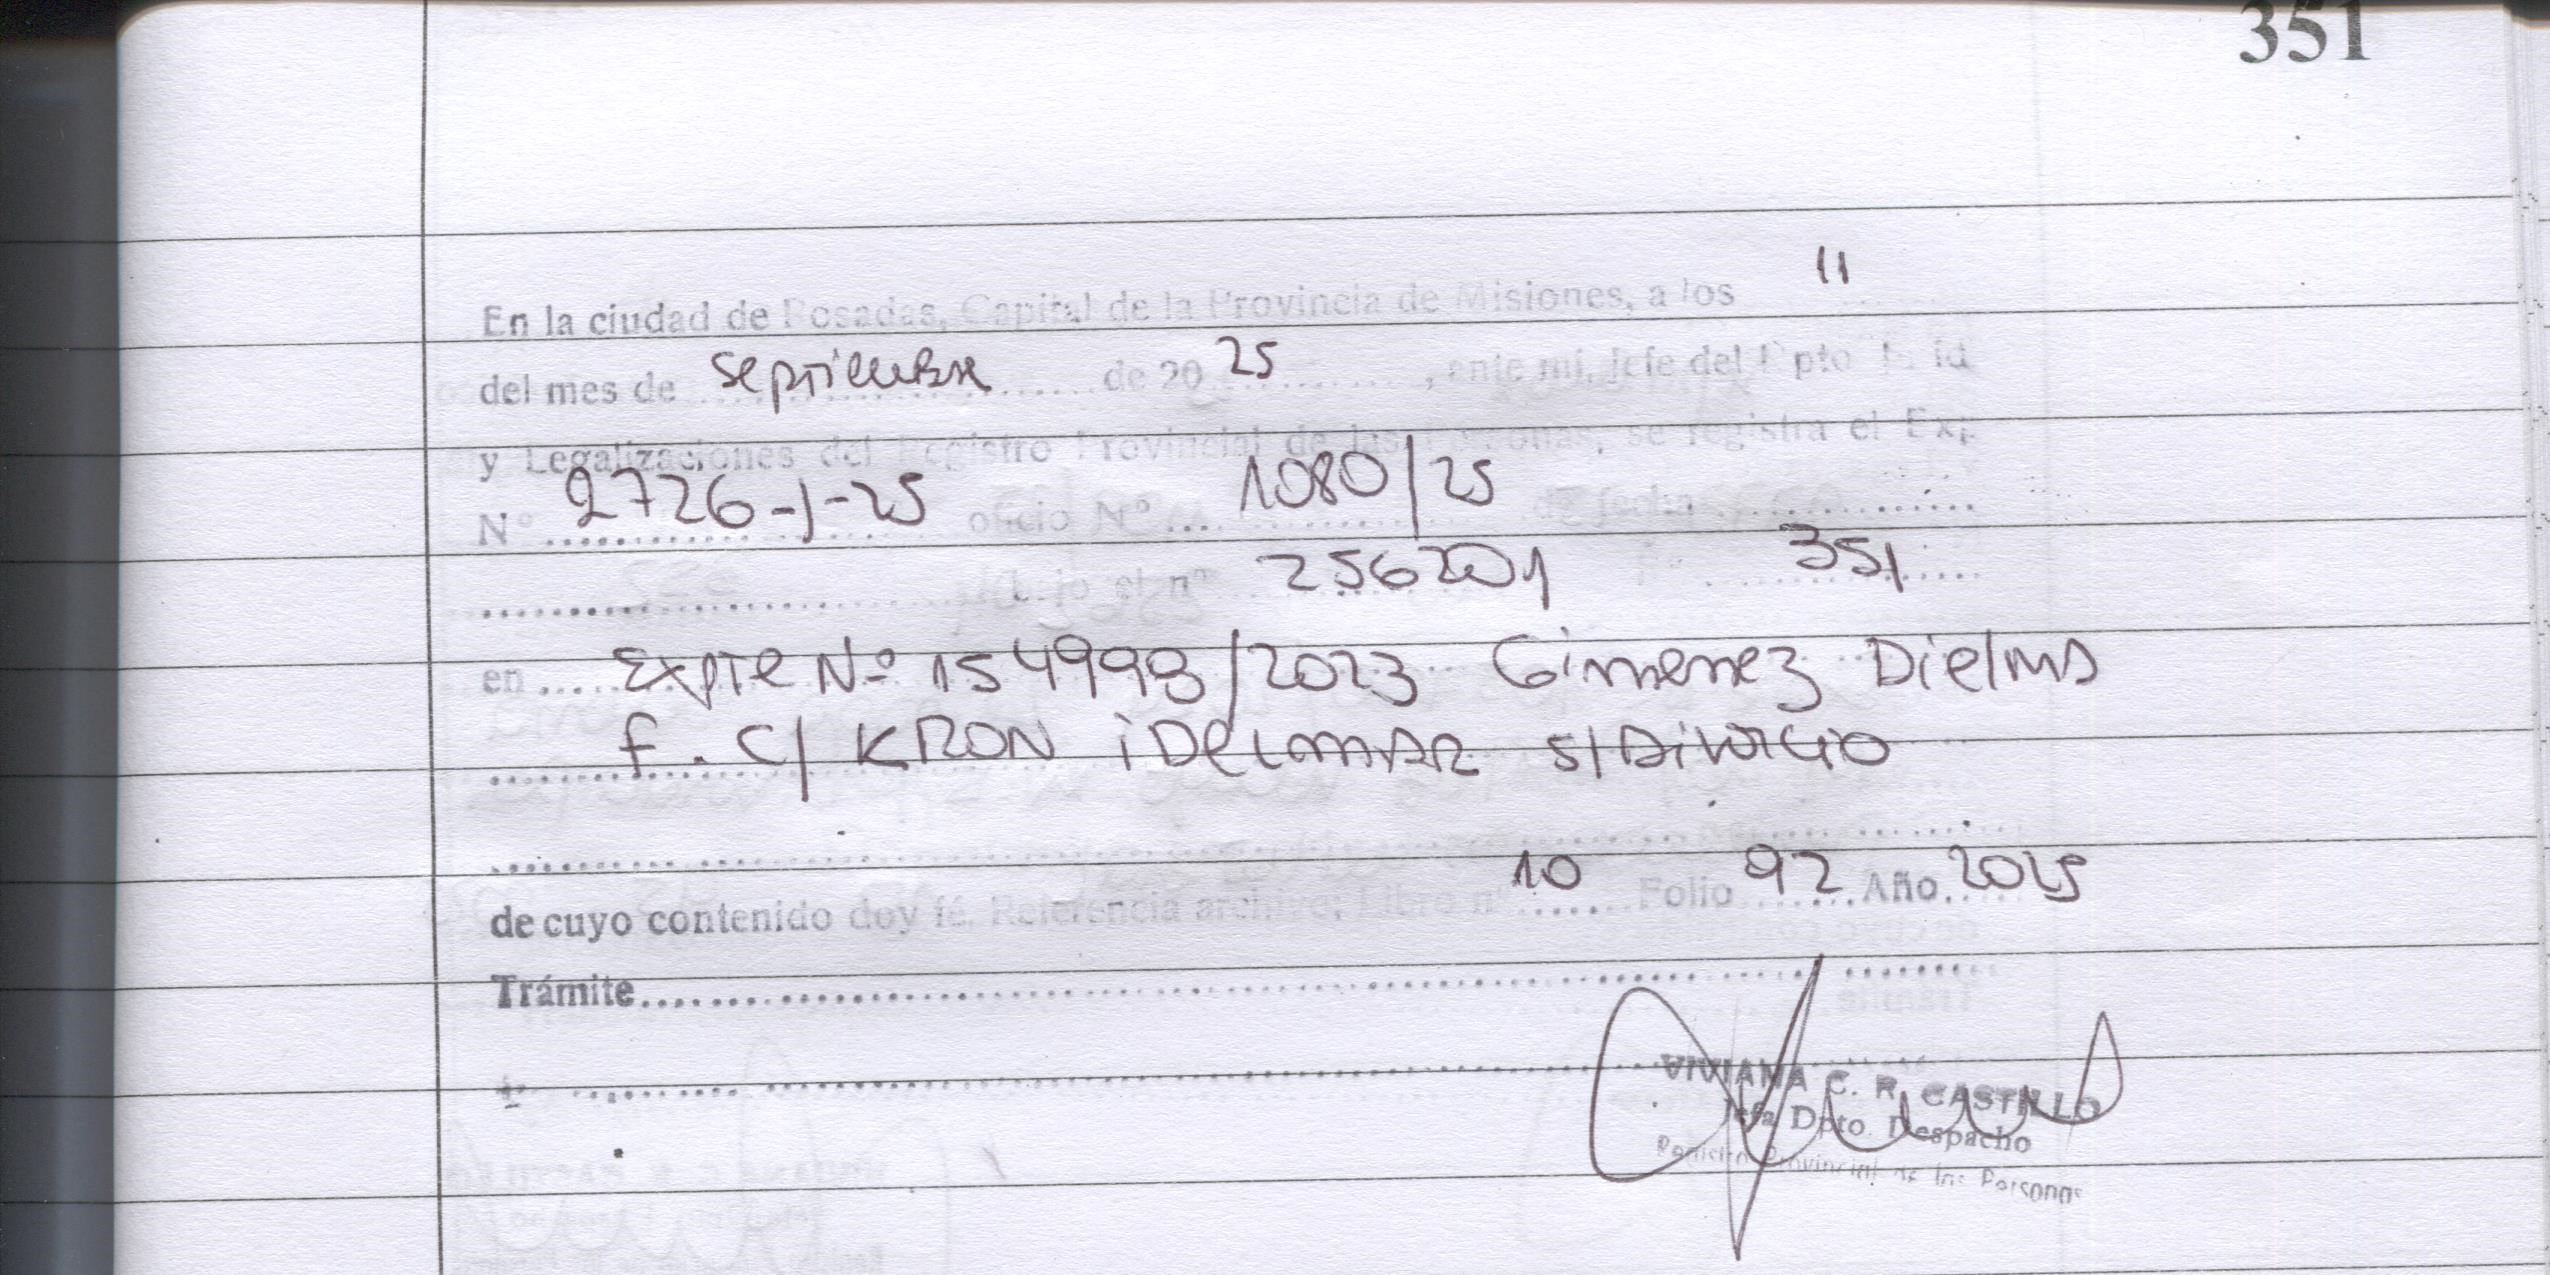 351
En la ciudad de Posadas, Capital de la Provincia de Misiones, a los 11
del mes de septiembre de 20 25, ante mi, Jefe del Dpto
y Legalizaciones del Registro Provincial de las Personas, se registra el Exp.
N° 2726-J-25 oficio N° 1080/25 de fecha
bajo el nº 256201 Fº 351
en Expte Nº 154998/2023 Gimenez Dielma
F. C/ KRON iDelmar S/Divorcio
10 92 2025
de cuyo contenido doy fé. Referencia archivo: Libro nº Folio Año
Trámite
VIVIANA C. R. CASTILLO
Jefa Dpto. Despacho
Registro Provincial de las Personas